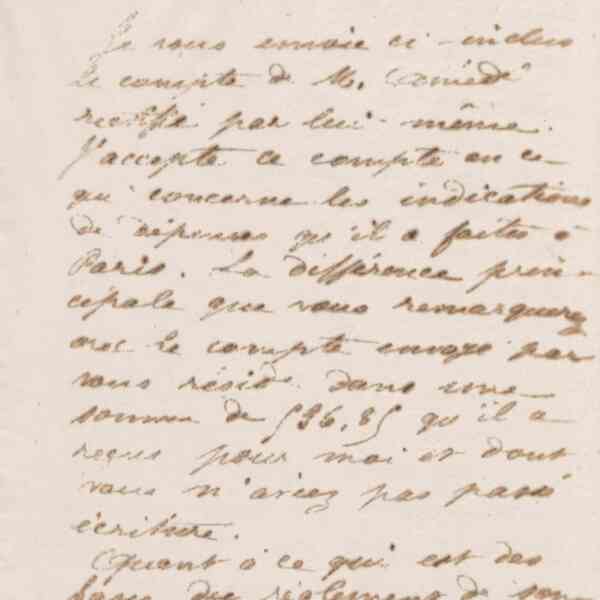 Je vous envoie ci-inclus
le compte de M.
rectifié par lui-même.
J'accepte ce compte en ce
qui concerne les indications
de dépenses qu'il a faites à
Paris. La différence prin-
cipale que vous remarquerez
avec le compte envoyé par
vous réside dans une
somme de qu'il a
reçue pour moi et dont
vous n'aviez pas passé
écriture.
Quant à ce qui est des
du règlement de